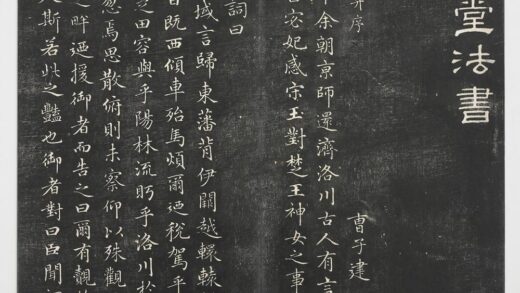 堂法書
并序 曹子建
余朝京師還濟洛川古人有言
曰宓妃感宋玉對楚王神女之事
詞曰
域言歸東藩背伊闕越轘轅
日既西傾車殆馬煩爾迺稅駕乎
芝田容與乎陽林流眄乎洛川於
忽焉思散俯則未察仰以殊觀
之畔迺援御者而告之曰爾有覿
人斯若此之豔也御者對曰臣聞